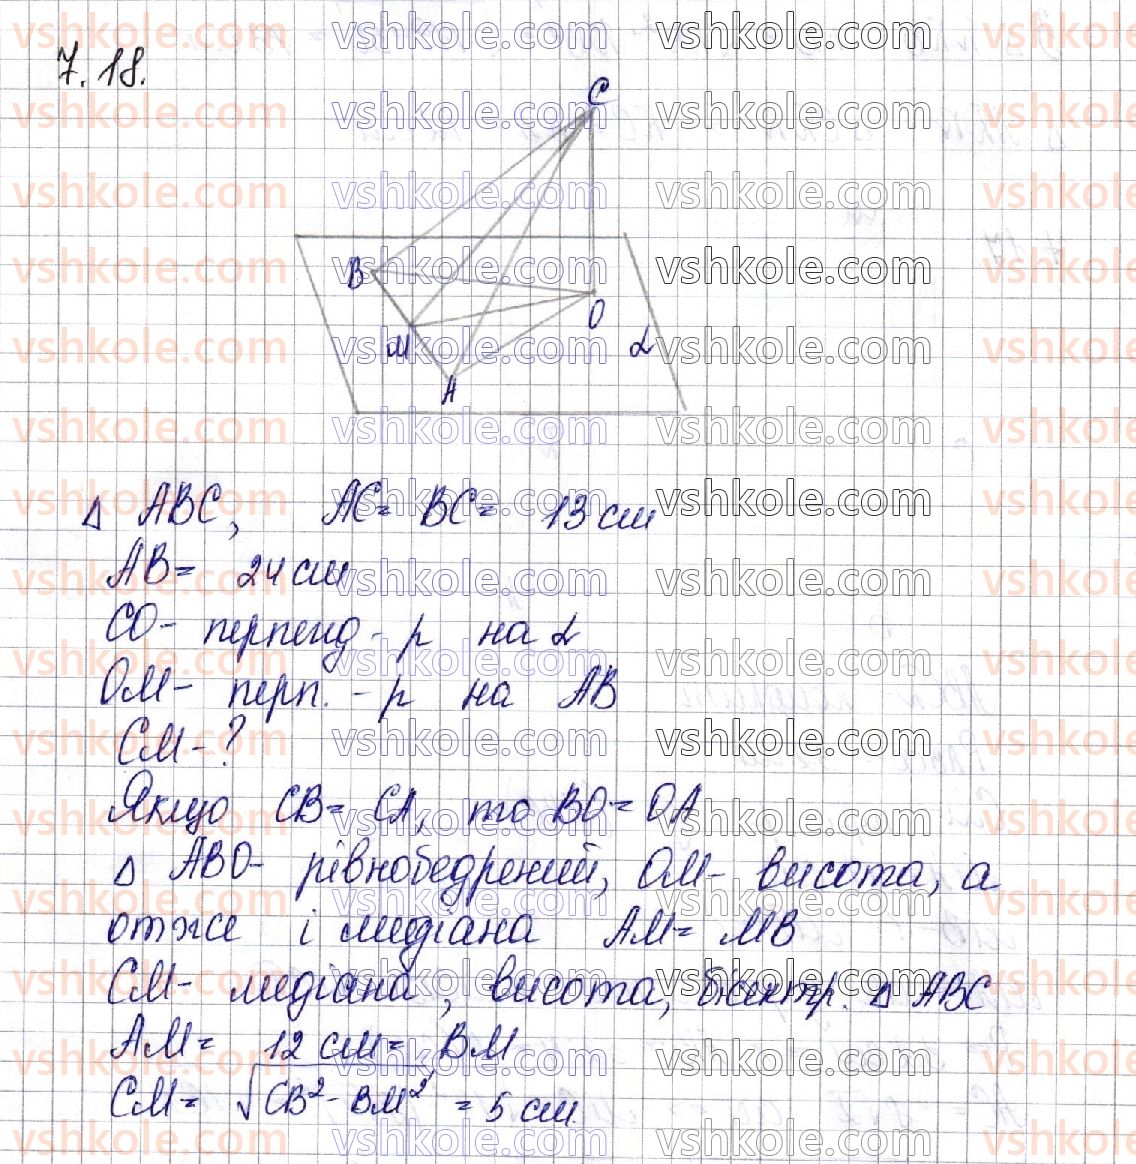 7.18.
C
B
O
M
α
A
Δ ABC, AC = BC = 13 см
AB = 24 см
CO - перпенд - р на α
OM - перп. - р на AB
CM - ?
Якщо CB = CA, то BO = OA
Δ ABO - рівнобедрений, OM - висота, а
отже і медіана AM = MB
CM - медіана, висота, бісектр. Δ ABC
AM = 12 см = BM
CM = √CB² - BM² = 5 см.
vshkole.com